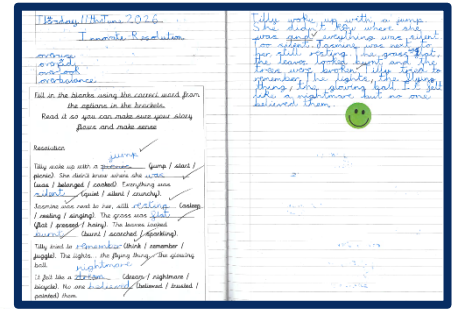 Thursday 11th June 2026
I innovate Resolution
overuse
overlook
overbalance
Fill in the blanks using the correct word from
the options in the brackets.
Read it so you can make sure your story
flows and make sense
Resolution
jump
Tilly woke up with a (jump / start /
picnic). She didn't know where she was
(was / belonged / cooked). Everything was
silent (quiet / silent / crunchy).
Jasmine was next to her, still resting (asleep
/ resting / singing). The grass was flat
(flat / pressed / hairy). The leaves looked
burnt (burnt / scorched / sparkling).
Tilly tried to remember (think / remember /
juggle). The lights... the flying thing... the glowing
ball.
nightmare
It felt like a dream (dream / nightmare /
bicycle). No one believed (believed / trusted /
painted) them.
Tilly woke up with a jump.
She didn't know where she
was and everything was silent
too silent. Jasmine was next to
her still resting. The grass flat,
the leaves looked burnt and the
trees were broken. Tilly tried to
remember the lights, the flying
thing, the glowing ball. It felt
like a nightmare but no one
believed them.